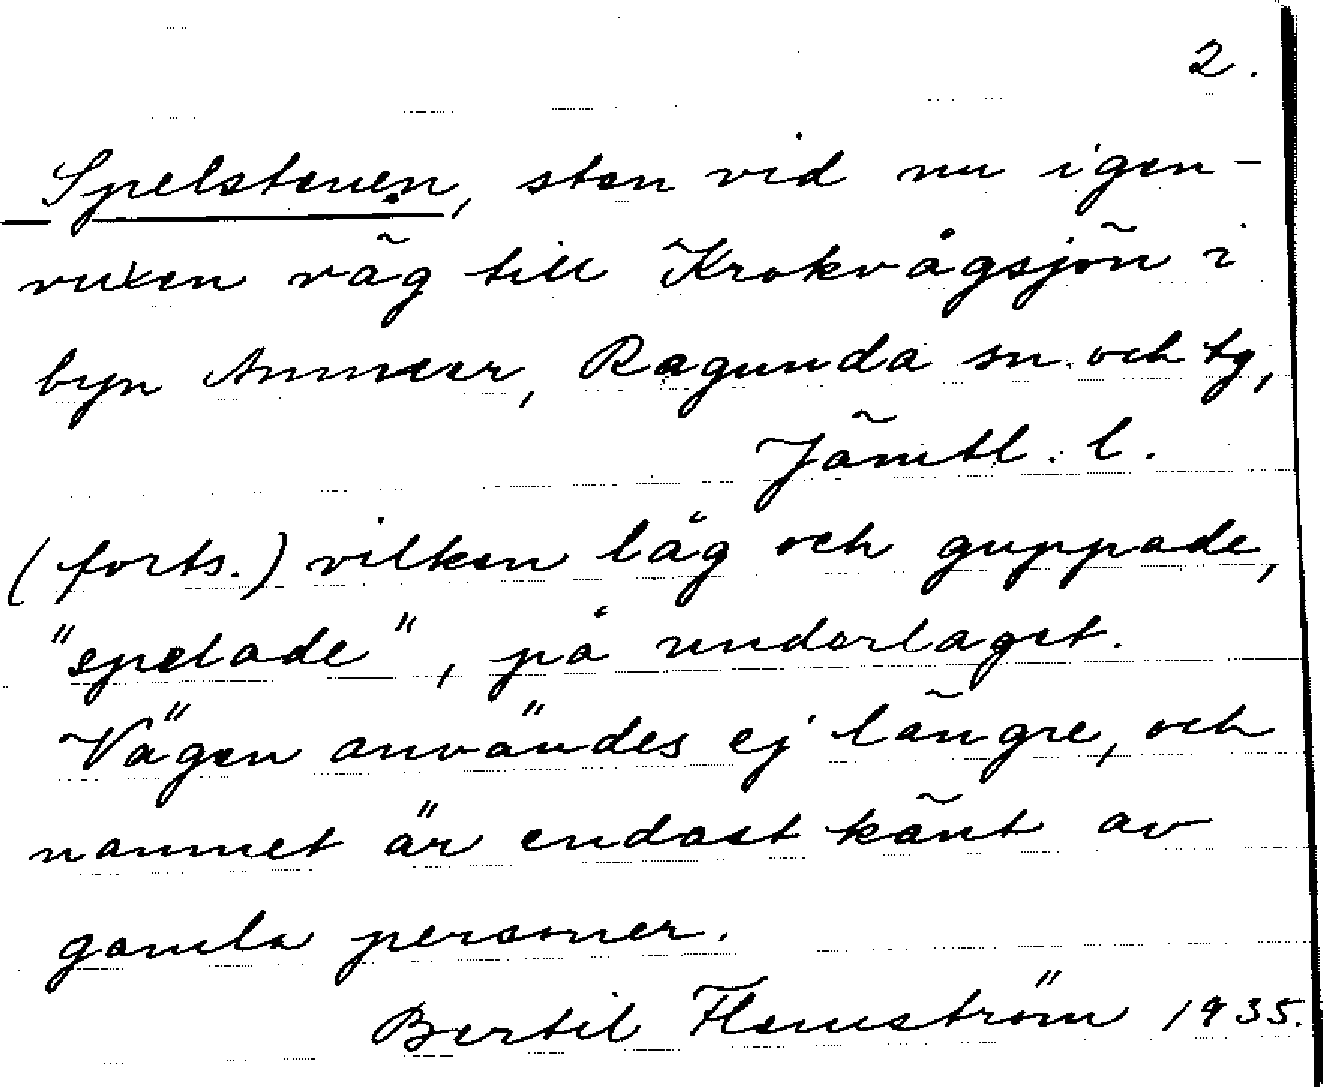 2.
Spelstenen, sten vid nu igen-
vuxen väg till Krokvågsjön i
byn Ammer, Ragunda sn och tg,
Jämtl. l.
(forts.) vilken låg och guppade,
"spelade", på underlaget.
Vägen användes ej längre, och
namnet är endast känt av
gamla personer.
Bertil Flemström 1935.